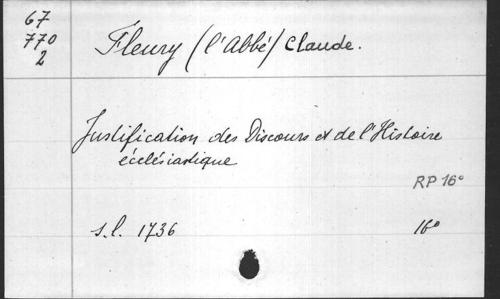 67
770
2
Fleury (l'Abbé) Claude.
Justification des Discours et de l'Histoire
écclésiastique
RP 16°
s.l. 1736
16°